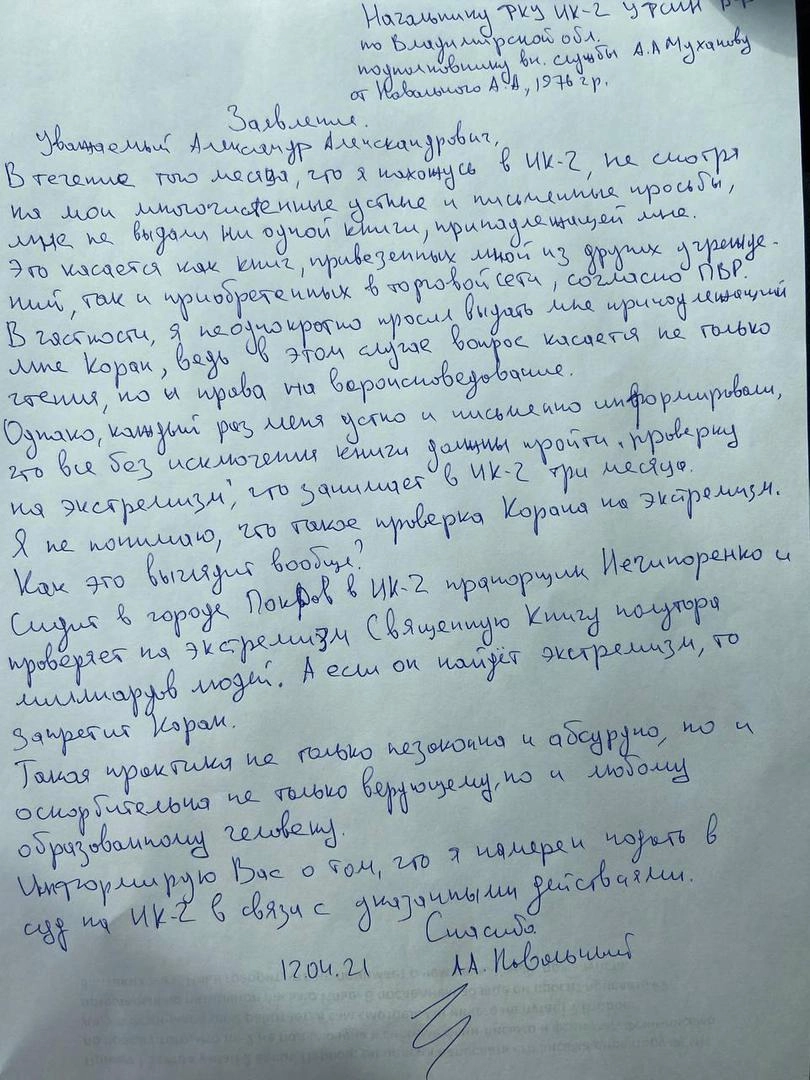 Начальнику ФКУ ИК-2 УФСИН РФ
по Владимирской обл.
подполковнику вн. службы А.А Муханову
от Навального А.А, 1976 г р.
Заявление.
Уважаемый Александр Александрович,
В течение того месяца, что я нахожусь в ИК-2, не смотря
на мои многочисленные устные и письменные просьбы,
мне не выдали ни одной книги, принадлежащей мне.
Это касается как книг, привезенных мной из других учрежде-
ний, так и приобретенных в торговой сети, согласно ПВР.
В частности, я неоднократно просил выдать мне принадлежащий
мне Коран, ведь в этом случае вопрос касается не только
чтения, но и права на вероисповедование.
Однако, каждый раз меня устно и письменно информировали,
что все без исключения книги должны пройти "проверку
на экстремизм", что занимает в ИК-2 три месяца.
Я не понимаю, что такое проверка Корана на экстремизм.
Как это выглядит вообще?
Сидит в городе Покров в ИК-2 прапорщик Нечипоренко и
проверяет на экстремизм Священную Книгу полутора
миллиардов людей. А если он найдёт экстремизм, то
запретит Коран.
Такая практика не только незаконна и абсурдна, но и
оскорбительна не только верующему, но и любому
образованному человеку.
Информирую Вас о том, что я намерен подать в
суд на ИК-2 в связи с указанными действиями.
Спасибо
12.04.21 А.А. Навальный